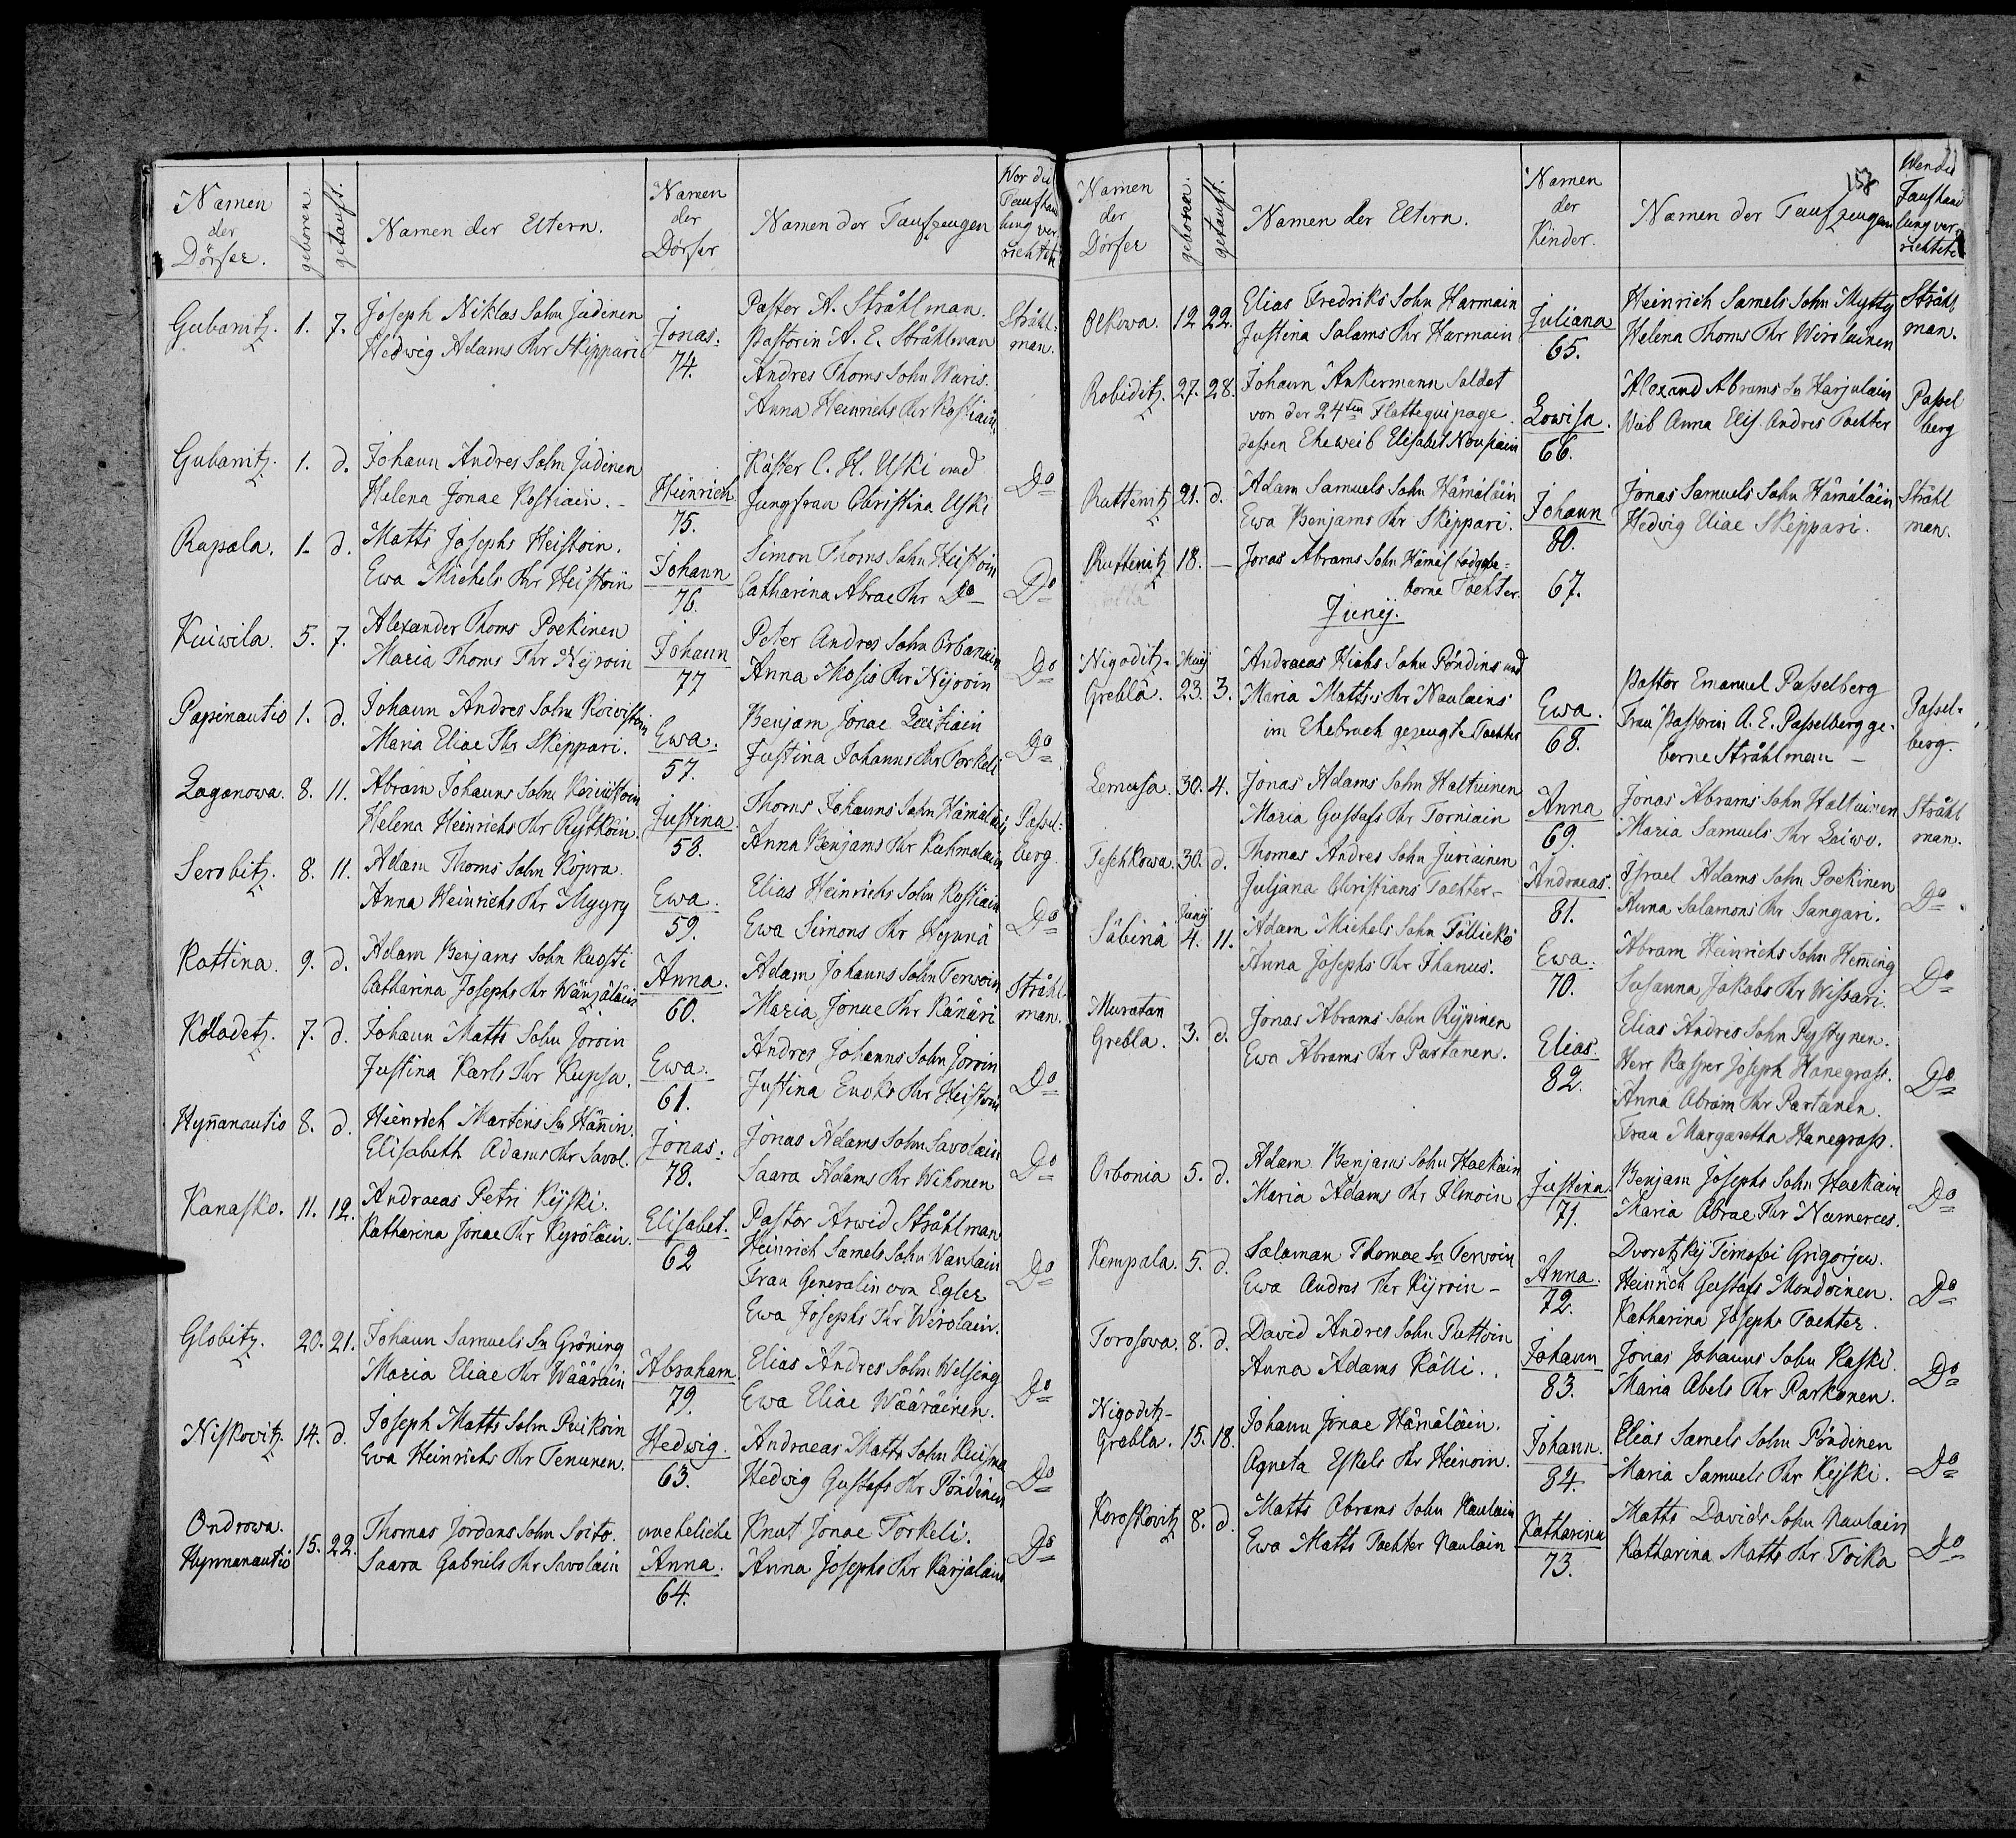 Namen der Dörfer. geboren. getauft. Namen der Eltern. Namen der Dörfer Namen der Taufzeugen Wer die Taufhand lung ver richtete
Gubanitz. 1. 7. Joseph Niklas Sohn Judinen Jonas. Pastor A. Stråhlman. Stråhl-
Hedwig Adams Thr Skippari 74. Pastorin A. E. Stråhlman man.
Andres Thoms Sohn Waris.
Anna Heinrichs Thr Kostiain
Gubanitz. 1. d. Johann Andres Sohn Judinen Heinrich Küster C. H. Uski und Do
Helena Jonae Kostiain. 75. Jungfrau Christina Uski
Rapala. 1. d. Matts Josephs Heistoin. Johann Simon Thoms Sohn Heistoin Do
Ewa Michels Thr Heistoin 76. Catharina Abrae Thr Do
Kuiwila. 5. 7. Alexander Thoms Poekinen Johann Peter Andres Sohn Orbanain Do
Maria Thoms Thr Nijroin 77 Anna Mosis Thr Nijroin
Papinautio 1. d. Johann Andres Sohn Koiwistoin Ewa. Benjam Jonae Do
Maria Eliae Thr Skeppari. 57. Justina Johanns Thr Torkeli
Laganowa. 8. 11. Abram Johanns Sohn Justina Thoms Johanns Sohn Hämäläin Passel-
Helena Heinrichs Thr 58. Anna Benjams Thr Kuhmalain berg.
Serobitz. 8. 11. Adam Thoms Sohn Köpra Ewa. Elias Heinrichs Sohn Kostiain Do
Anna Heinrichs Thr Myyry 59. Ewa Simons Thr Hynnä
Kottina. 9. d. Adam Benjams Sohn Ruosti Anna. Adam Johanns Sohn Terwoin Stråhl
Catharina Josephs Thr Wänzäläin 60. Maria Jonae Thr Känäri man.
Kolladetz. 7. d. Johann Matts Sohn Joroin Ewa. Andres Johanns Sohn Joroin Do
Justina Karls Thr Kupsa. 61. Justina Enoks Thr Heistoin
Hynnanautio 8. d. Heinrich Martens Sn Hännin. Jonas. Jonas Adams Sohn Savolain Do
Elisabeth Adams Thr Savol. 78. Saara Adams Thr Wihonen
Kanasko. 11. 12. Andraeas Petri Kijski. Elisabet. Pastor Arwid Stråhlman
Katharina Jonae Thr Kyröläin. 62 Heinrich Samels Sohn Wanhain Do
Frau Generalin von Egler
Ewa Josephs Thr Wirolain.
Globitz. 20. 21. Johann Samuels Sn Gröning Abraham Elias Andres Sohn Welsing Do
Maria Eliae Thr Wääräin 79. Ewa Eliae Wääräinen.
Niskovitz. 14. d. Joseph Matts Sohn Peikoin Hedwig. Andraeas Matts Sohn Kuisma Do
Ewa Heinrichs Thr Tenunen. 63. Hedwig Gustafs Thr Pöndinen
Ondrowa. 15. 22. Thomas Jordans Sohn Soito. uneheliche Knut Jonae Torkeli. Do
Hynnanautio Saara Gabriels Thr Savolain Anna. Anna Josephs Thr Karjalain
64.
158
Namen der Dörfer geboren. getauft. Namen der Eltern. Namen der Kinder. Namen der Taufzeugen Wer die Taufhand lung ver- richtete
Olkowa. 12 22. Elias Fredriks Sohn Harmain Juliana Heinrich Samels Sohn Mytty Stråhl
Justina Salams Thr Harmain 65. Helena Thoms Thr Wirolainen man.
Robiditz. 27. 28. Johann Ankermann Soldat Lowisa. Alexand Abrams Sn Harjulain Passel
von der 24ten Flottequipage 66. Weib Anna Elis. Andres Tochter berg
dessen Eheweib Elisabet Nousiain
Ruttenitz 21. d. Adam Samuels Sohn Hämäläin Johann Jonas Samuels Sohn Hämäläin Stråhl
Ewa Benjams Thr Skeppari. 80. Hedwig Eliae Skeppari. man.
Ruttenitz 18. — Jonas Abrams Sohn Hämäl todtge-
borne Tochter. 67.
Junij.
Nigoditz- Maij Andraeas Hiobs Sohn Pöndins und Ewa. Pastor Emanuel Passelberg Passel-
Grebla. 23. 3. Maria Mattss Thr Naulains 68. Frau Pastorin A. E. Passelberg ge- berg.
im Ehebruch gezeugte Tochter borne Stråhlman —
Lemusa. 30. 4. Jonas Adams Sohn Haltuinen Anna Jonas Abrams Sohn Haltuinen Stråhl
Maria Gustafs Thr Torniain 69. Maria Samuels Thr Laiwo. man.
Teschkowa. 30. d. Thomas Andres Sohn Juriainen Andraeas. Israel Adams Sohn Poekinen Do
Juljana Christians Tochter- 81. Anna Salamons Thr Sangari.
Junij
Säbinä 4. 11. Adam Michels Sohn Föllickö Ewa. Abram Heinrichs Sohn Heming Do
Anna Josephs Thr Thanus. 70. Susanna Jakobs Thr Wissari.
Muratan Grebla. 3. d. Jonas Abrams Sohn Rijpinen Elias. Elias Andres Sohn Pystynen.
Ewa Abrams Thr Partanen. 82. Herr Kasper Joseph Hanegrass. Do
Anna Abram Thr Partanen.
Frau Margaretha Hanegrass.
Orbonia 5. d. Adam Benjams Sohn Haekain Justina. Benjam Josephs Sohn Haekain Do
Maria Adams Thr Ilmoin 71. Maria Abrae Thr Numerces.
Kempala. 5. d. Salaman Thomae Sn Terwoin Anna. Dvoretzkij Timofei Grigorjew. Do
Ewa Andres Thr Kijroin - 72. Heinrich Gustafs Mondoinen.
Katharina Josephs Tochter.
Torosowa. 8. d. David Andres Sohn Puttoin Johann Jonas Johanns Sohn Kaski. Do
Anna Adams Källi. 83. Maria Abels Thr Parkonen.
Nigoditz-
Grebla. 15. 18. Johann Jonae Hämäläin. Johann. Elias Samels Sohn Pöndinen Do
Agneta Eskels Thr Heinoin. 84. Maria Samuels Thr Kijski.
Koroskovitz 8. d. Matts Abrams Sohn Naulain Katharina Matts Davids Sohn Naulain Do
Ewa Matts Tochter Naulain 73. Katharina Matts Thr Toika